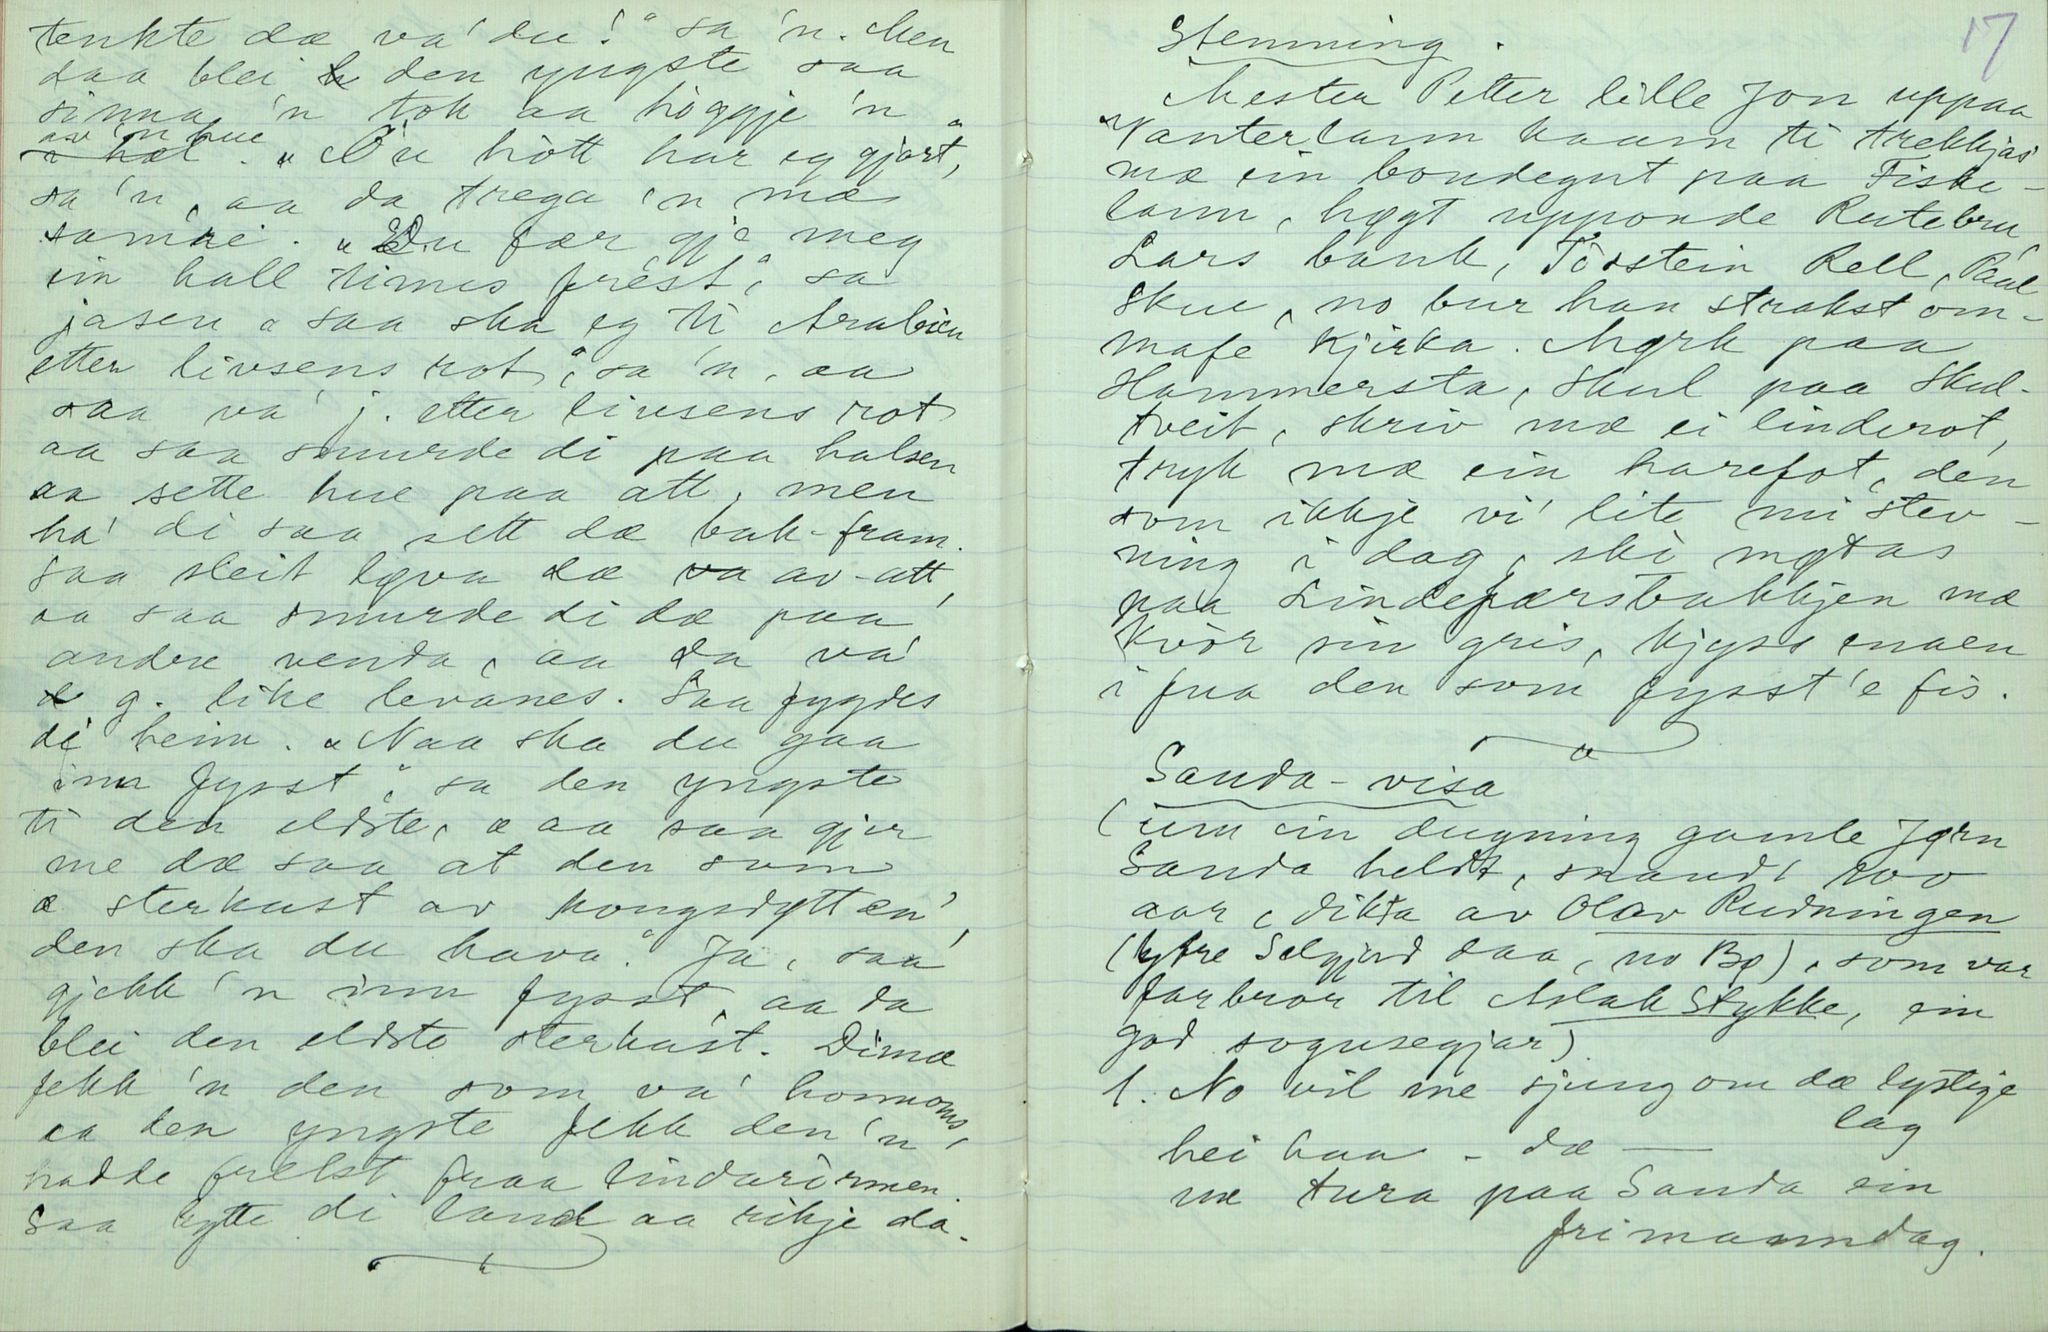 tenkte dæ va' du!" sa 'n. Men
daa blei den yngste saa
sinna 'n tok aa höggje 'n
av 'n hue
i hæl. "Du hött har eg gjort,"
sa 'n, aa da trega 'n mæ
samae. "Du fær gje meg
ein hall times frést," sa
jasen "saa ska eg ti Arabien
etter livsens rot," sa 'n, aa
saa va' j. etter livsens rot
aa saa smurde di paa halsen
aa sette hue paa att, men
ha' di saa sett dæ bak-fram.
Saa sleit løva dæ va av-att,
aa saa smurde di dæ paa
andre venda, aa da va'
g. like levanes. Saa fygdes
di heim. "Naa ska du gaa
inn fysst," sa den yngste
ti den eldste, "aa saa gjer
me dæ saa at den som
æ sterkast av kongsdøtt'en',
den ska du hava." Ja, saa
gjekk 'n inn fysst, aa da
blei den eldste sterkast. Dimæ
fekk 'n den som va' honnoms,
aa den yngste fekk den 'n
hadde frelst fraa lindarormen.
Saa bytte di land aa rikje da.
17
Stemning.
Mester Petter lille Jon uppaa
Vanterlann kaam ti trekkjas
mæ ein bondegut paa Fiske-
lann, høgt upponde Rutebru
Lars bank, Torstein Rell, Paal
Skue, no bur han strakst om-
mafe kjirka. Mørk paa
Hammersta, Skul paa Skul-
tveit, skriv mæ ei linderot,
tryk mæ ein harefot, den
som ikkje vi' lite mi stev-
ning i dag, ski møtas
paa Lindefærsbakkjen mæ
kvòr sin gris, kjyss enaen
i fua den som fysst 'e fis.
Sanda-visa
(um ein dugning gamle Jørn
Sanda heldt, snaudt 100
aar, dikta av Olav Rudningen
(ytre Selgjord daa, no Bø), som var
farbror til Aslak Stykke, ein
god sogusegjar)
1. No vil me sjung om dæ lystige
lag
hei haa - dæ —
me tura paa Sanda ein
frimaanndag.